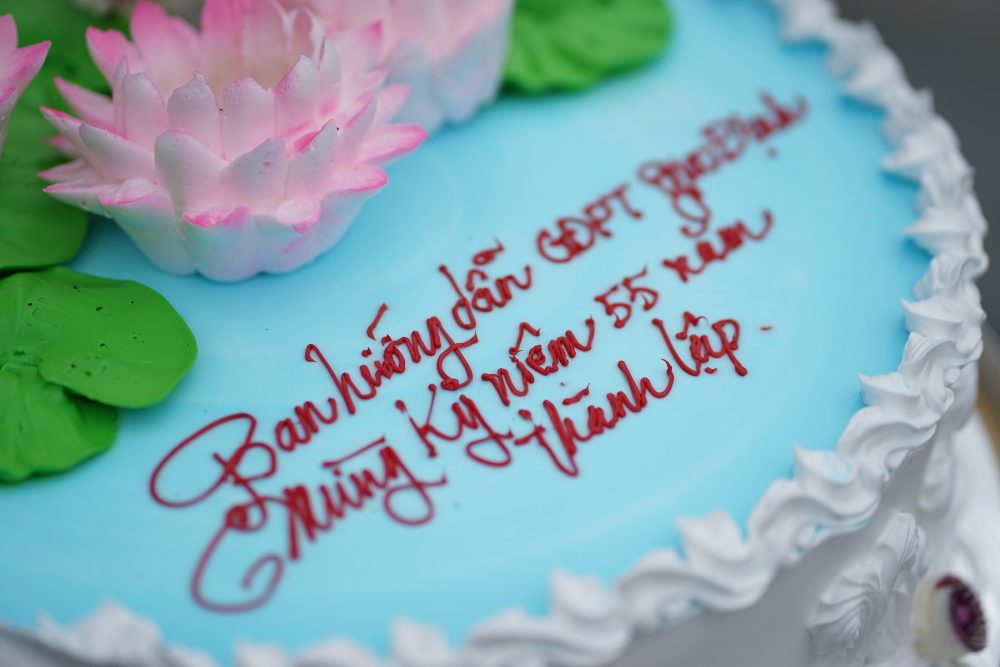 Ban hướng dẫn GĐPT Gia Định
Mừng Kỷ niệm 55 năm
thành lập.